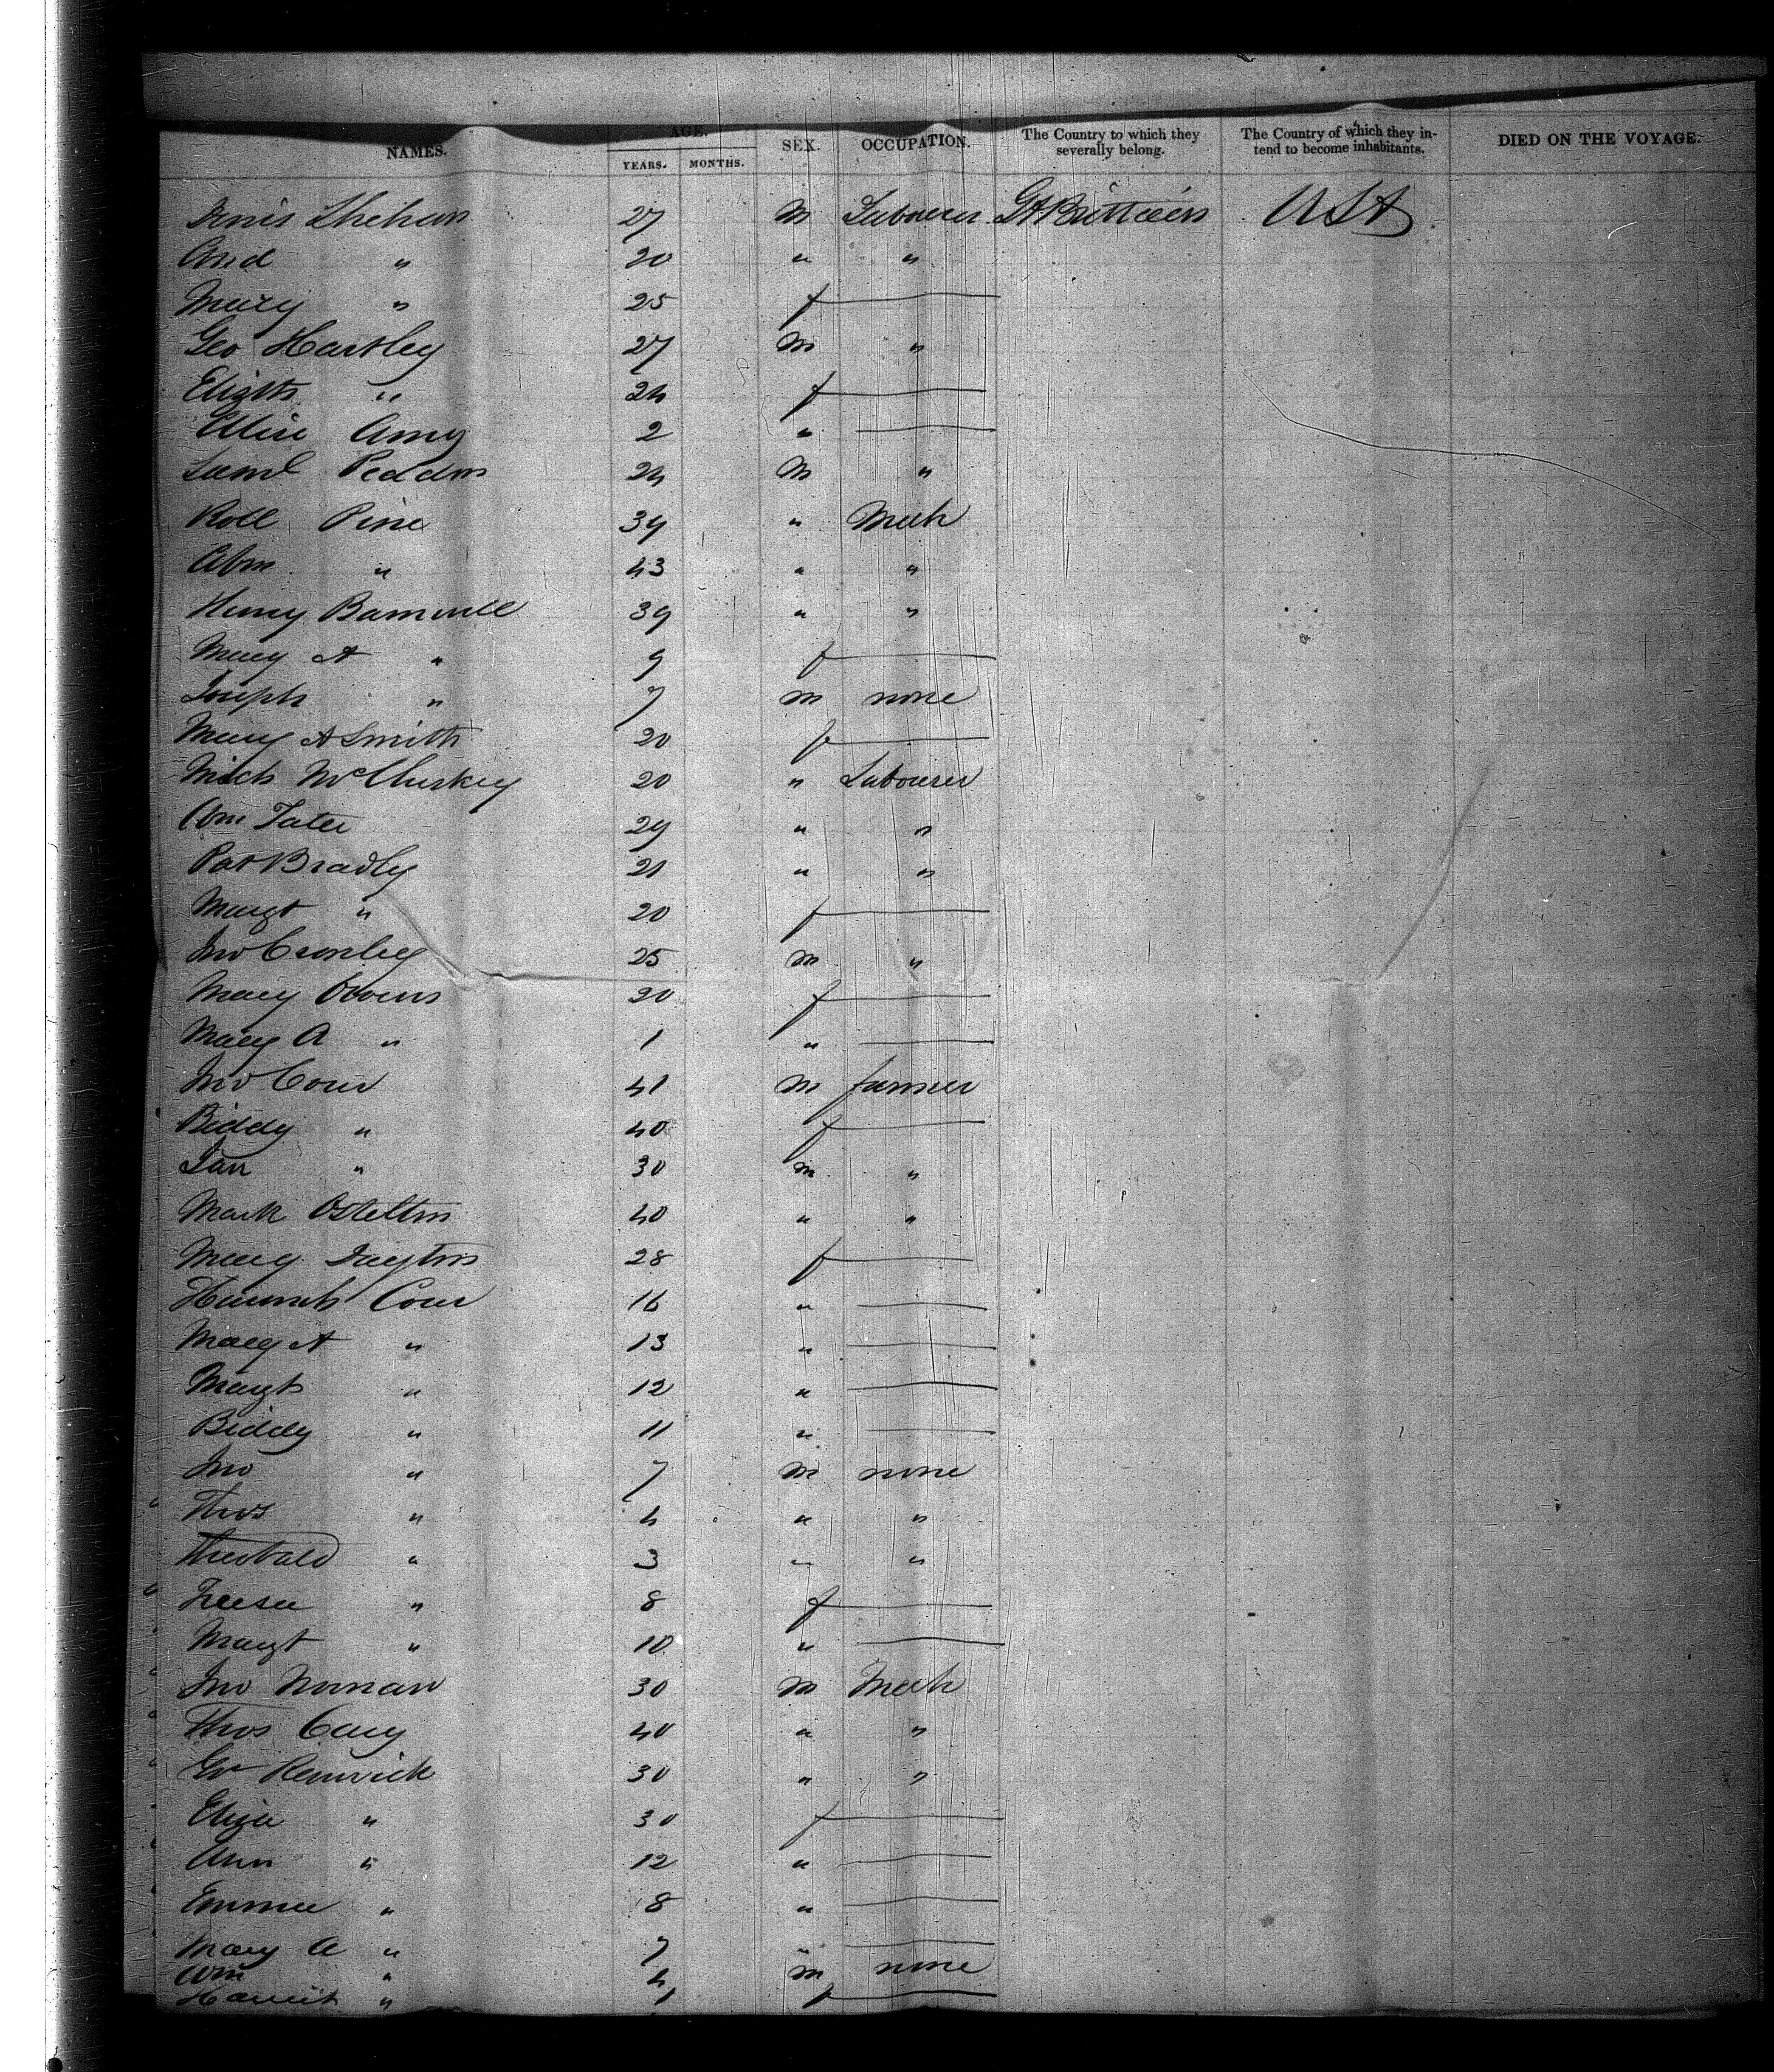 NAMES. AGE. YEARS. MONTHS. SEX. OCCUPATION. The Country to which they severally belong. The Country of which they intend to become inhabitants. DIED ON THE VOYAGE.
Denis Shehan 27 M Labourer Gt Brittain USA
And " 20 " "
Mary " 25 f
Geo Hartley 27 M "
Elizth " 24 f
Amy 2 "
Saml Peddon 24 M "
Pine 39 " Mech
Abm " 43 " "
Henry Barnwell 39 " "
Mary A " 9 f
Joseph " 7 m none
Mary A Smith 20 f
Mich McCluskey 20 " Labourer
Wm Tater 29 " "
Pat Bradly 21 " "
Margt " 20 f
Jno Cronley 25 m "
Mary Owens 20 f
Mary A " 1 "
Jno 41 m farmer
Biddy " 40 f
" 30 m "
Mark 40 " "
Mary 28 f
Hannah 16 "
Mary A " 13 "
Margt " 12 "
Biddy " 11 "
Jno " 7 m none
Thos " 4 " "
Theobald " 3 " "
" 8 f
Margt " 10 "
Jno Noonan 30 m Mech
Thos Cary 40 " "
Renwick 30 " "
Eliza " 30 f
Ann " 12 "
Emma " 8 "
Mary A " 7 "
Wm " 4 m none
Harriet " 1 f